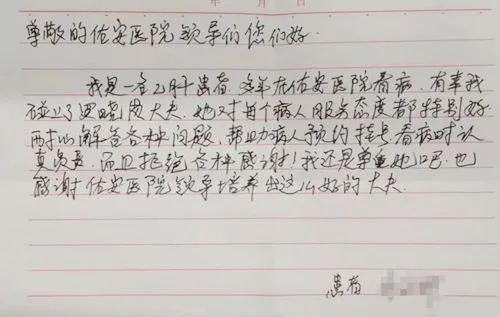 月 日
尊敬的佑安医院领导们您们好
我是一名乙肝患者，这年在佑安医院看病，有幸我
碰上了 晓 大夫，她对每个病人服务态度都特别好
耐心解答各种问题，帮助病人预约挂号看病时认
真负责，而且拒绝各种感谢！我还是尊重她吧，也
感谢佑安医院领导培养出这么好的大夫
患者